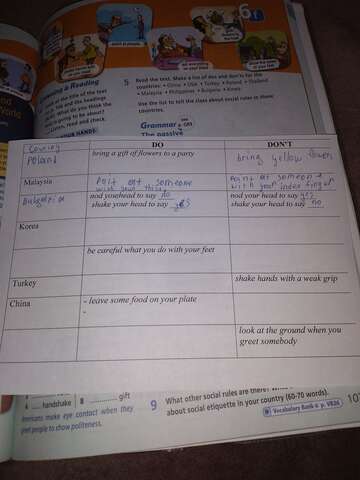 6f
5 Read the text. Make a list of dos and don'ts for the
countries: • China • USA • Turkey • Poland • Thailand
• Malaysia • Philippines • Bulgaria • Korea
Use the list to tell the class about social rules in these
countries.
& Reading
at the title of the text
and its headings.
What do you think the
is going to be about?
Listen, read and check.
YOUR HANDS:
Grammar
The passive
Country
DO
DON'T
Poland
bring a gift of flowers to a party
bring yellow flowers
Malaysia
Point at someone
with your thumb
Point at someone
with your index finger
Bulgaria
nod your head to say no
shake your head to say yes
nod your head to say yes
shake your head to say no
Korea
be careful what you do with your feet
Turkey
shake hands with a weak grip
China
- leave some food on your plate
-
look at the ground when you
greet somebody
4 handshake 8 gift
make eye contact when they
greet people to show politeness.
9 What other social rules are there?
about social etiquette in your country (60-70 words).
Vocabulary Bank 6 p. VB26